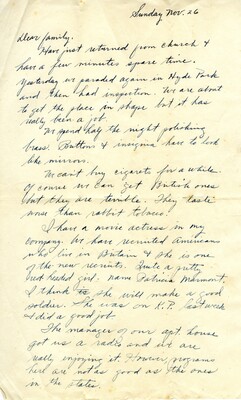 Sunday Nov. 26
Dear family,
Have just returned from church &
have a few minutes spare time.
Yesterday we paraded again in Hyde Park
and then had inspection. We are about
to get the place in shape but it has
really been a job.
We spend half the night polishing
brass. Buttons & insignia have to look
like mirrors.
We can't buy cigarets for a while.
Of course we can get British ones
but they are terrible. They taste
worse than rabbit tobacco.
I have a movie actress in my
company. We have recruited Americans
who live in Britain & she is one
of the new recruits. Quite a pretty
red headed girl. name Patricia Marmont.
I think she will make a good
soldier. She was on K.P. last week
& did a good job.
The manager of our apt. house
got us a radio and we are
really enjoying it. However, programs
here are not as good as the ones
in the states.